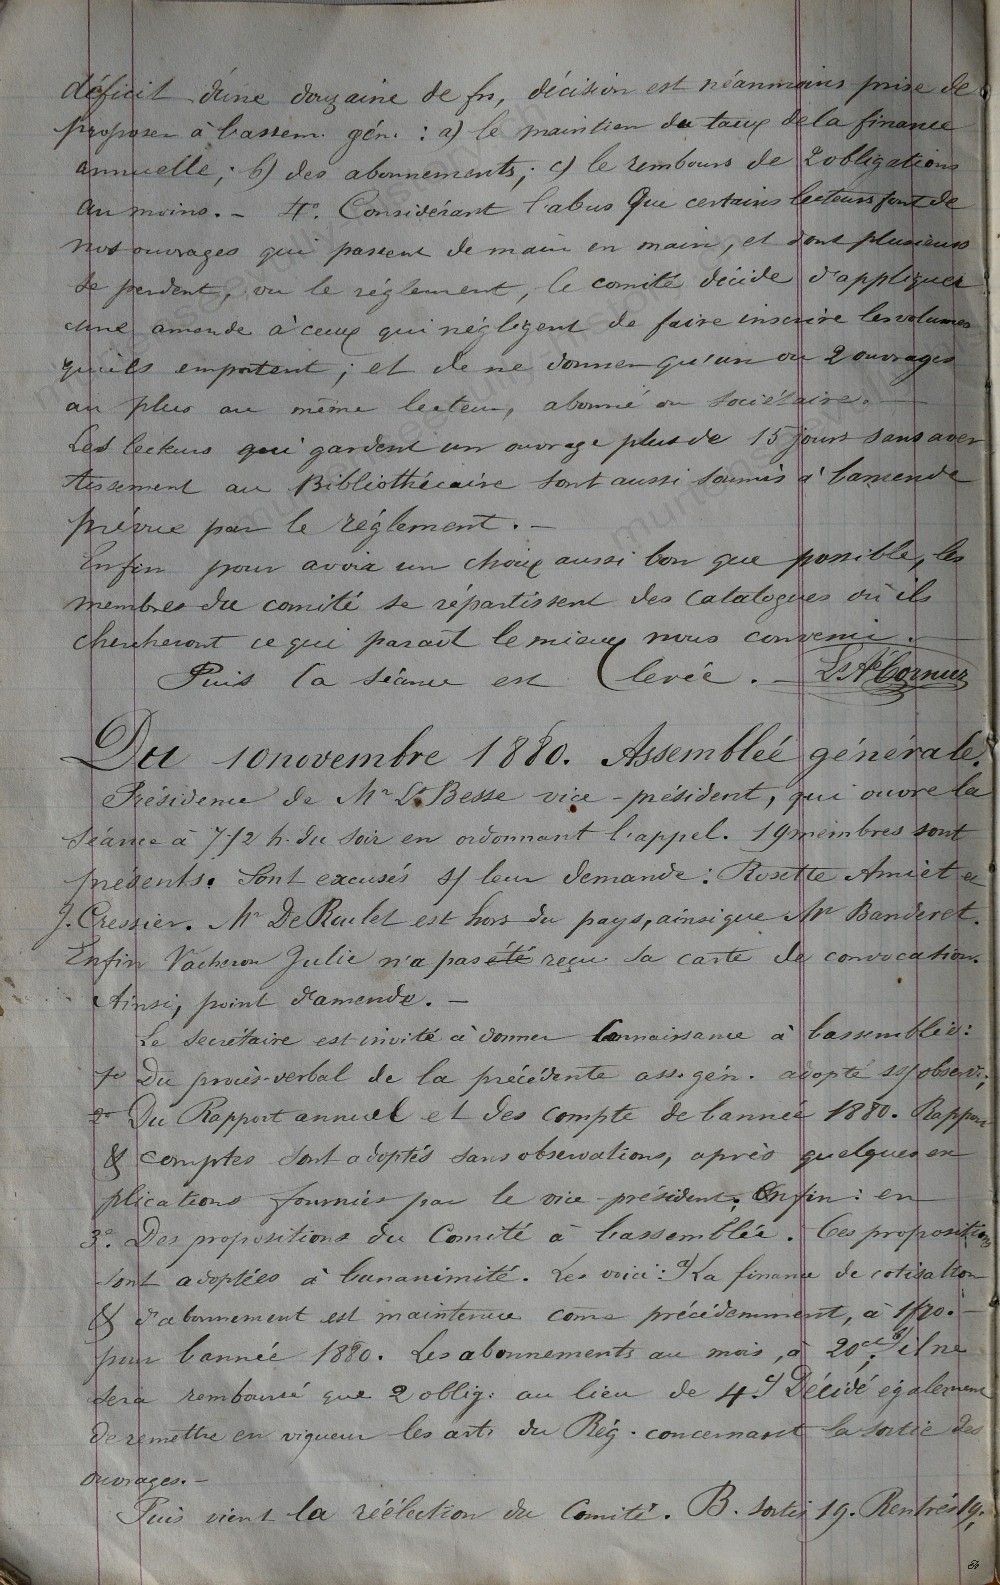 déficit d'une douzaine de frs, décision est néanmoins prise de
proposer à l'assem. gén. : a) le maintien du taux de la finance
annuelle ; b) des abonnements ; c) le rembours de 2 obligations
au moins. – 4°. Considérant l'abus que certains lecteurs font de
nos ouvrages qui passent de main en main, et dont plusieurs
se perdent, vu le réglement, le comité décide d'appliquer
une amende à ceux qui négligent de faire inscrire les volumes
qu'ils emportent ; et de ne donner qu'un ou 2 ouvrages
au plus au même lecteur, abonné ou sociétaire. —
Les lecteurs qui gardent un ouvrage plus de 15 jours sans aver
tissement au Bibliothécaire sont aussi soumis à l'amende
prévue par le réglement. –
Enfin pour avoir un choix aussi bon que possible, les
membres du comité se répartissent des catalogues où ils
chercheront ce qui parait le mieux nous convenir. –
Puis la séance est levée. – Ls Ad Cornuz
Du 10 novembre 1880. Assemblée générale.
Présidence de Mr Ls Besse vice-président, qui ouvre la
séance à 7 1/2 h. du soir en ordonnant l'appel. 19 membres sont
présents. Sont excusés s/ leur demande : Rosette Amiet et
J. Cressier. Mr De Roulet est hors du pays, ainsi que Mr Banderet.
Enfin Vacheron Julie n'a pas été reçu sa carte de convocation.
Ainsi, point d'amende. –
Le secrétaire est invité à donner connaissance à l'assemblée :
1° Du procès-verbal de la précédente ass. gén. adopté ss/ observ ;
2° Du Rapport annuel et des compte de l'année 1880. Rapport
& comptes sont adoptés sans observations, après quelques ex
plications fournies par le vice-président ; Enfin : en
3°. Des propositions du Comité à l'assemblée. Ces propositions
sont adoptées à l'unanimité. Les voici : a) La finance de cotisation
& d'abonnement est maintenue come précédemment, à 1f20. –
pour l'année 1880. Les abonnements au mois, à 20 ct ; b) il ne
sera remboursé que 2 oblig. au lieu de 4. c) Décidé également
de remettre en vigueur les arts du Rég. concernant la sortie des
ouvrages. –
Puis vient la réélection du Comité. B. sortis 19. Rentrés 19 ;